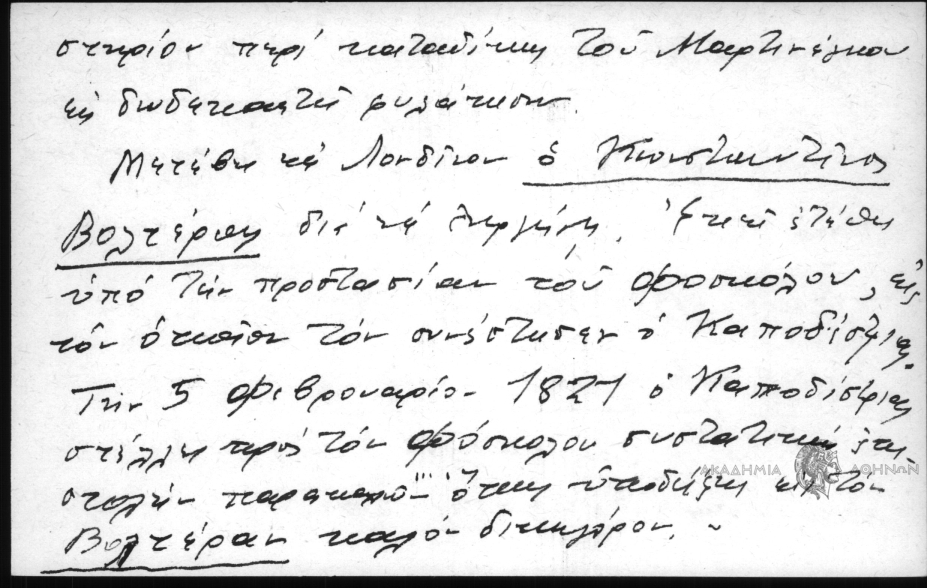 στήριον περί καταδίκης τοῦ Μαρτινέγκου
εἰς δωδεκαετῆ φυλάκισιν.
Μετέβη εἰς Λονδῖνον ὁ Κωνσταντῖνος
Βολτέρρας διά νά ἐνεργήση. Ἐκεῖ ἐτέθη
ὑπό τήν προστασίαν τοῦ Φοσκόλου, εἰς
τόν ὁποῖον τόν συνέστησεν ὁ Καποδίστριας.
Τήν 5 Φεβρουαρίου 1821 ὁ Καποδίστριας
στέλλει πρός τόν Φόσκολον συστατικήν ἐπι-
στολήν παρακαλῶν ὅπως ὑποδείξη εἰς τόν
Βολτέραν καλόν δικηγόρον.
ΑΚΑΔΗΜΙΑ ΑΘΗΝΩΝ